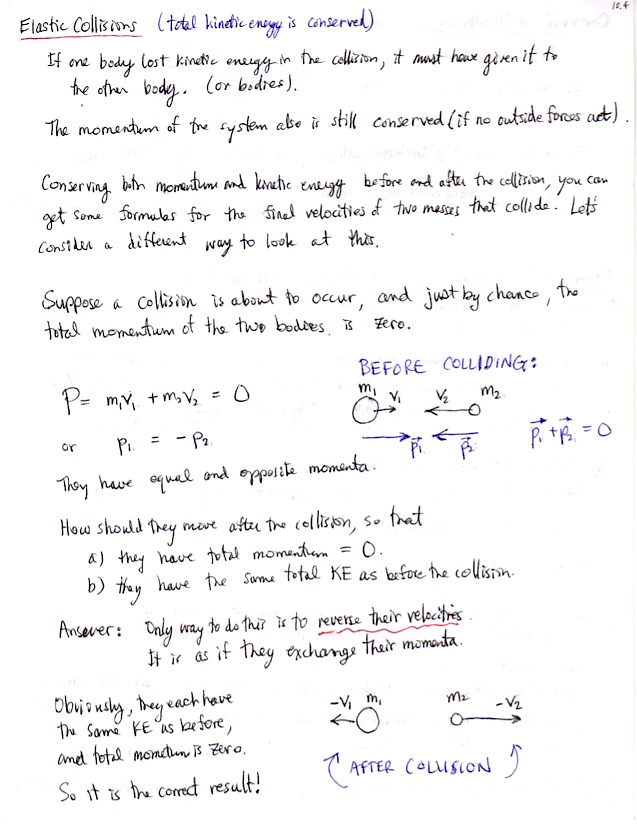 10.4
Elastic Collisions (total kinetic energy is conserved)
If one body lost kinetic energy in the collision, it must have given it to
the other body. (or bodies).
The momentum of the system also is still conserved (if no outside forces act).
Conserving both momentum and kinetic energy before and after the collision, you can
get some formulas for the final velocities of two masses that collide. Let's
consider a different way to look at this.
Suppose a collision is about to occur, and just by chance, the
total momentum of the two bodies is zero.
BEFORE COLLIDING:
m₁ v₁ v₂ m₂
P = m₁v₁ + m₂v₂ = 0
p⃗₁ p⃗₂ p⃗₁ + p⃗₂ = 0
or p₁ = - p₂
They have equal and opposite momenta.
How should they move after the collision, so that
a) they have total momentum = 0.
b) they have the same total KE as before the collision.
Answer: Only way to do this is to reverse their velocities.
It is as if they exchange their momenta.
Obviously, they each have
the same KE as before,
and total momentum is zero.
So it is the correct result!
-v₁ m₁ m₂ -v₂
AFTER COLLISION